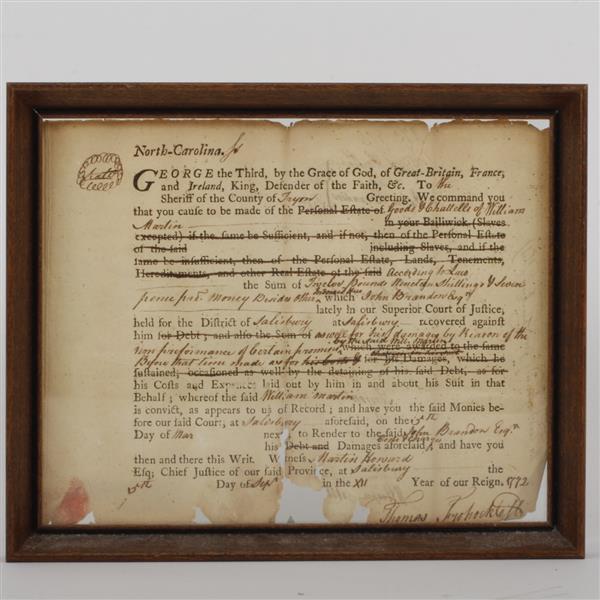 North-Carolina. ſs
GEORGE the Third, by the Grace of God, of Great-Britain, France,
and Ireland, King, Defender of the Faith, &c. To the
Sheriff of the County of Tryon Greeting. We command you
that you cause to be made of the Personal Estate of Goods & Chattells of William
Martin in your Bailiwick (Slaves
excepted) if the same be Sufficient, and if not, then of the Personal Estate
of the said including Slaves, and if the
same be insufficient, then of the Personal Estate, Lands, Tenements,
Hereditaments, and other Real Estate of the said According to Law
the Sum of Twelve Pounds Nineteen Shillings & Seven
pence Money Besides which John Brandon Esqr.
lately in our Superior Court of Justice,
held for the District of Salisbury at Salisbury recovered against
him for Debt; and also the Sum of as well for his damages by Reason of the
non preformance of Certain promises by the said Will: Martin which were awarded to the same
time made as for his Damages, which he
sustained, occasioned as well by the detaining of his said Debt, as for
his Costs and Expences laid out by him in and about his Suit in that
Behalf; whereof the said William Martin
is convict, as appears to us of Record; and have you the said Monies be-
fore our said Court, at Salisbury aforesaid, on the 5th
Day of Mar next to Render to the said John Brandon Esqr.
his Debt and Damages aforesaid, and have you
then and there this Writ Witness Martin Howard
Esq; Chief Justice of our said Province, at Salisbury the
5th Day of Sepr in the XII Year of our Reign. 1772
Thomas Frohock